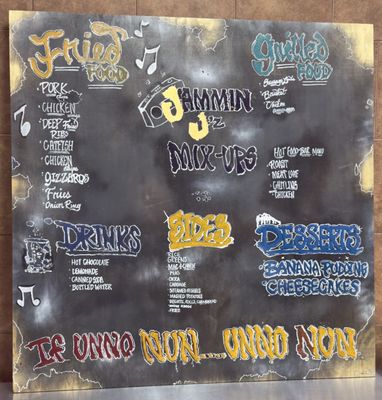 Fried
FOOD
PORK
CHICKEN
DEEP Fried
RIBS
CATFISH
CHICKEN
GIZZARDS
Fries
Onion Ring
JAMMIN
J'z
MIX-UPS
grilled
FOOD
Brisket
HOT FOOD BAR MENU
ROAST
MEAT LOAF
CHITLINS
CHICKEN
DRINKS
HOT CHOCOLATE
LEMONADE
CANNED SODA
BOTTLED WATER
SIDES
RICE
GREENS
MAC & CHEESE
PEAS
OKRA
CABBAGE
MASHED POTATOES
FRIES
DESSERTS
BANANA PUDDING
CHEESECAKES
IF UNNO NUN.... UNNO NUN